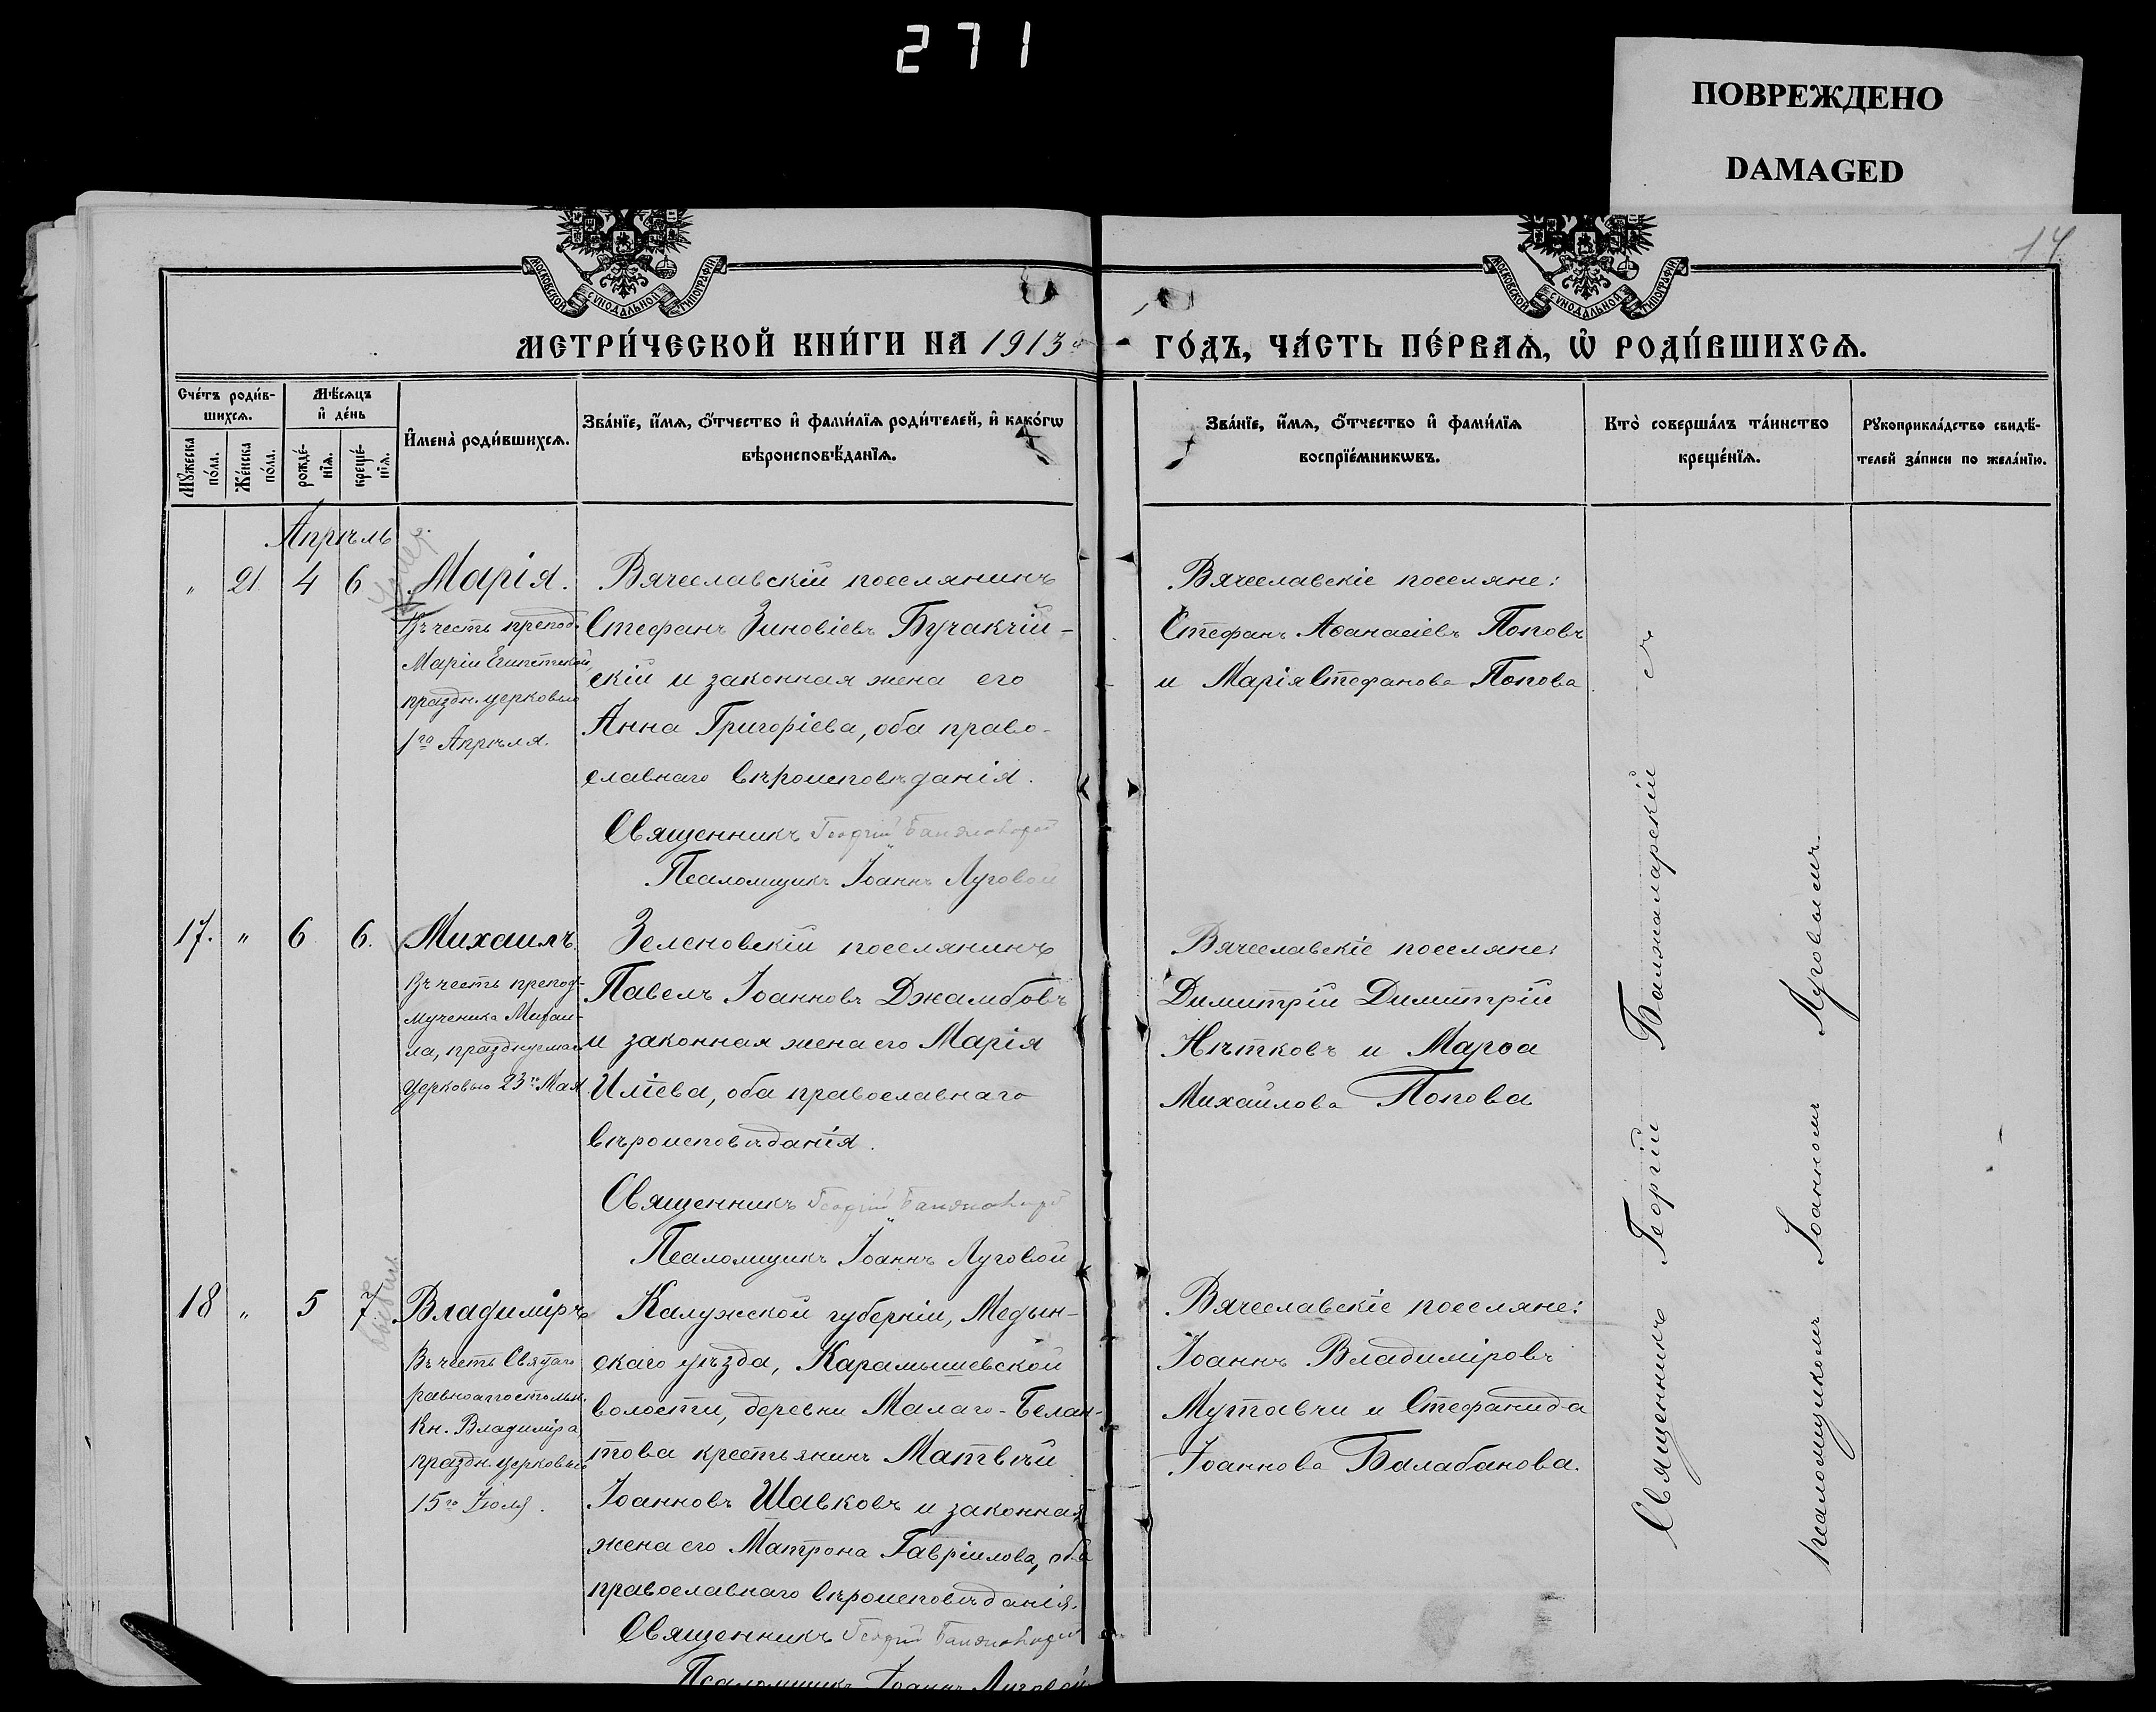 271
ПОВРЕЖДЕНО
DAMAGED
14
МОСКОВСКОЙ СѴНОДАЛЬНОЙ ТИПОГРАФІИ
МОСКОВСКОЙ СѴНОДАЛЬНОЙ ТИПОГРАФІИ
МЕТРИ́ЧЕСКОЙ КНИ́ГИ НА 1913
ГО́ДЪ, ЧА́СТЬ ПЕ́РВАЯ, Ѡ РОДИ́ВШИХСЯ.
Сче́тъ роди́в-
шихся.
Мꙋжеска по́ла.
Же́нска по́ла.
Мѣ́сяцъ
и҆ де́нь
рожде́-
нїя.
креще́-
нїя.
И҆мена̀ роди́вшихся.
Зва́нїе, и҆́мя, ѻ҆́тчество и҆ фами́лїя роди́телей, и҆ како́гѡ
вѣроисповѣ́данїя.
Зва́нїе, и҆́мя, ѻ҆́тчество и҆ фами́лїя
воспрїе́мникѡвъ.
Кто̀ соверша́лъ та́инство
креще́нїя.
Рꙋкоприкла́дство свидѣ́-
телей за́писи по жела́нїю.
Апрѣль
" 21 4 6 Марія.
Въ честь препод.
Маріи Египетской,
праздн. церковью
1го Апрѣля.
Вячеславскій поселянинъ
Стефанъ Зиновіевъ Бучакчій-
скій и законная жена его
Анна Григоріева, оба право-
славнаго вѣроисповѣданія.
Священникъ Георгій
Псаломщикъ Іоаннъ Луговой
Вячеславскіе поселяне:
Стефанъ Аѳанасіевъ Поповъ
и Марія Стефанова Попова
17. " 6 6. Михаилъ.
Въ честь препод-
мученика Михаи-
ла, празднуемаго
церковью 23го Мая
Зеленовскій поселянинъ
Павелъ Іоанновъ Джамбовъ
и законная жена его Марія
Иліева, оба православнаго
вѣроисповѣданія.
Священникъ Георгій
Псаломщикъ Іоаннъ Луговой
Вячеславскіе поселяне:
Димитрій Димитрій
Нѣтковъ и Марѳа
Михайлова Попова
18 " 5 7. Владиміръ
Въ честь Святаго
равноапостольн.
Кн. Владиміра,
праздн. церковью
15го Іюля.
Калужской губерніи, Медын-
скаго уѣзда, Карамышевской
волости, деревни Малаго-Белан-
това крестьянинъ Матвѣй
Іоанновъ Шавковъ и законная
жена его Матрона Гавріилова, оба
православнаго вѣроисповѣданія.
Священникъ Георгій
Псаломщикъ Іоаннъ Луговой
Вячеславскіе поселяне:
Іоаннъ Владиміровъ
Мутавчи и Стефанида
Іоаннова Балабанова.
Священникъ Георгій Банжиларскій съ
псаломщикомъ Іоанномъ Луговымъ